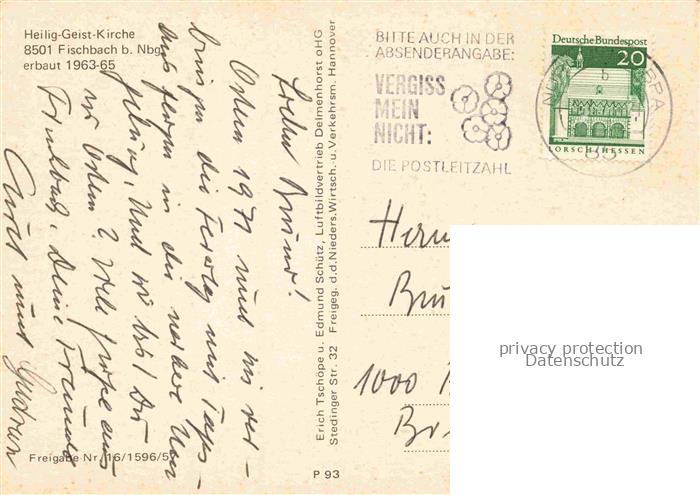 Heilig-Geist-Kirche
8501 Fischbach b. Nbg.
erbaut 1963-65
Lieber Bruno!
Ostern 1971 und wir ver-
bringen die Feiertage mit Tages-
ausflügen in der näheren Um
gebung. Und wo bist Du
zu Ostern? Viele Grüße aus
Fischbach, Deine Freunde
und Gudrun
Freigabe Nr. 16/1596/5
Erich Tschöpe u. Edmund Schütz, Luftbildvertrieb Delmenhorst oHG
Stedinger Str. 32 Freigeg. d.d. Nieders. Wirtsch. u. Verkehrsm. Hannover
P 93
BITTE AUCH IN DER
ABSENDERANGABE:
VERGISS
MEIN
NICHT:
DIE POSTLEITZAHL
Deutsche Bundespost
20
b
85
LORSCH/HESSEN
Herrn
Bru
1000
privacy protection
Datenschutz